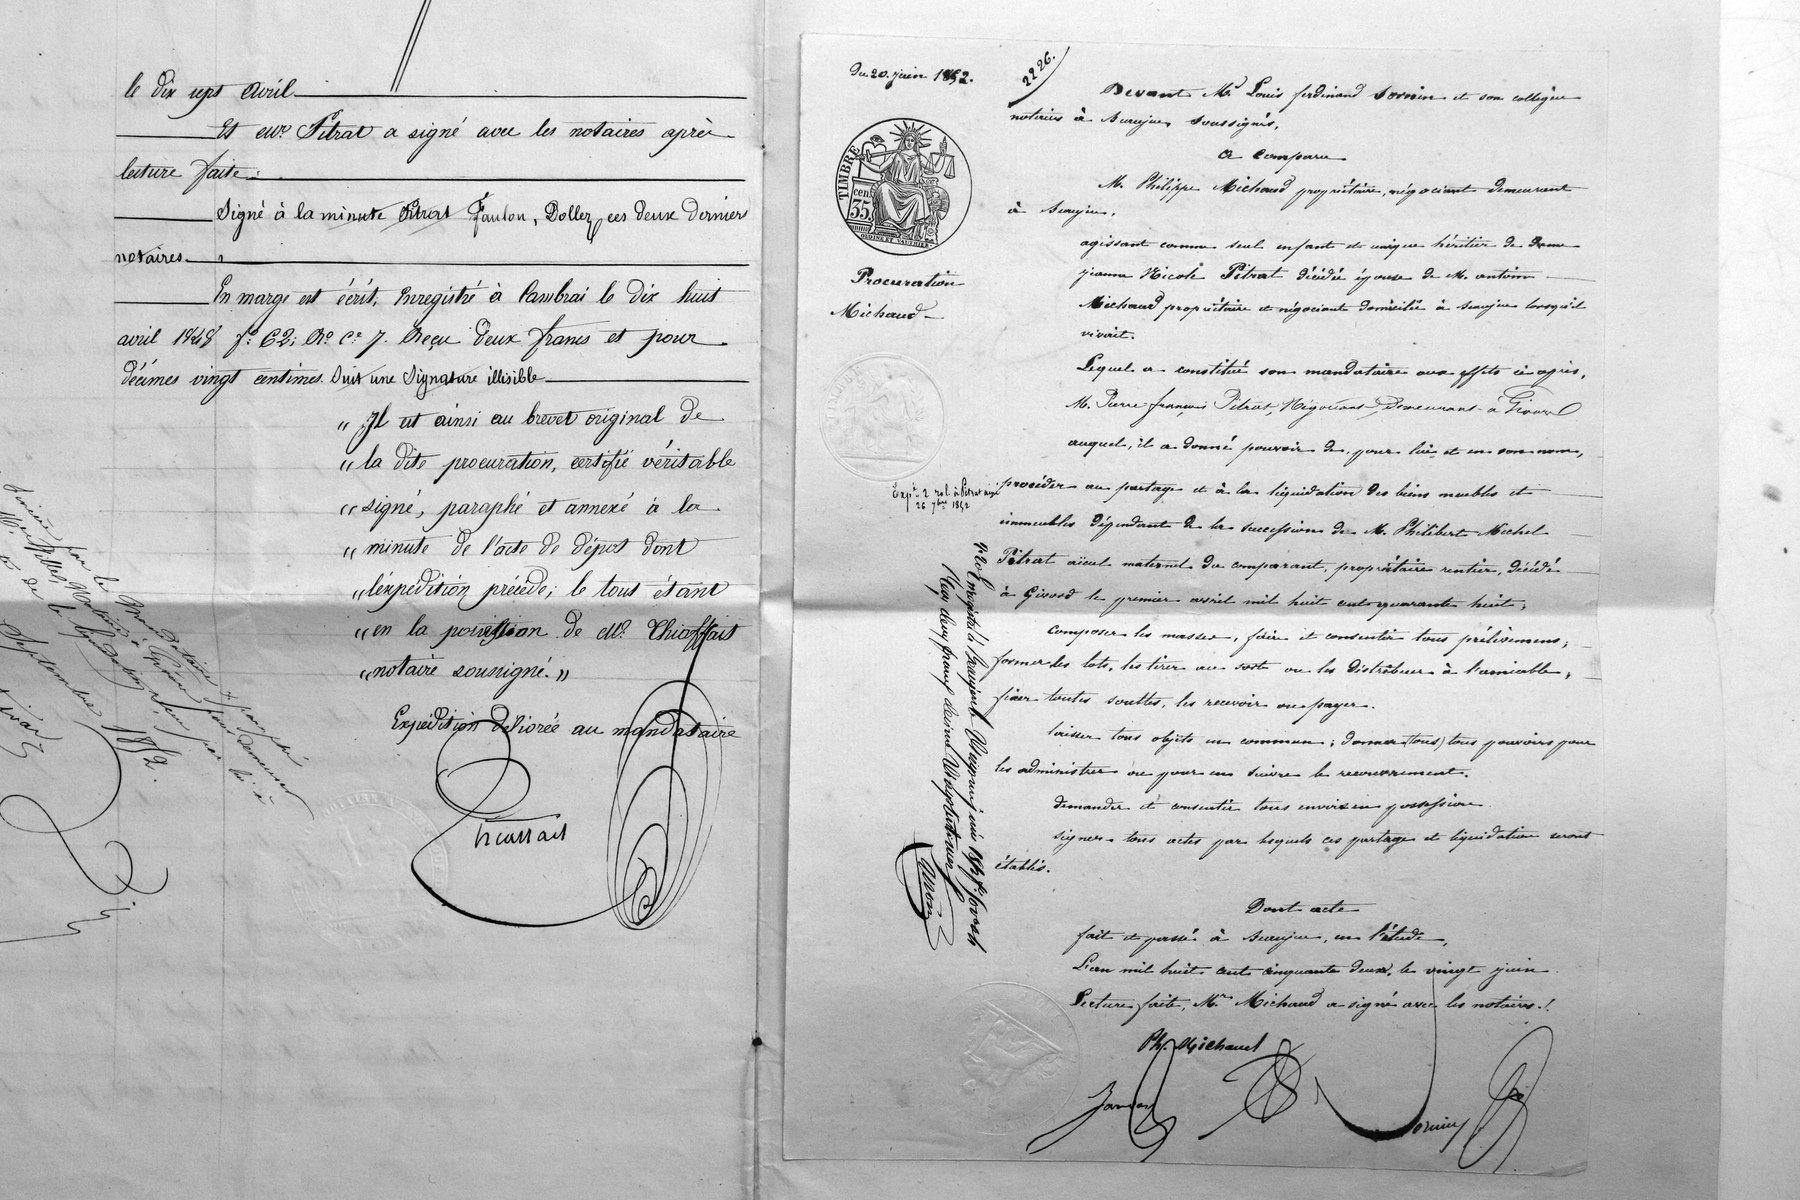 le dix sept avril
Et Mr. Pitrat a signé avec les notaires après
lecture faite.
Signé à la minute Pitrat Faulon, Dollez, ces deux derniers
notaires.
En marge est écrit, Enregistré à Cambrai le dix huit
avril 1848 fo. 62, Ro. Ce. 7. Reçu deux francs et pour
décimes vingt centimes. Suit une signature illisible
"Il est ainsi au brevet original de
"la dite procuration, certifié véritable
"signé, paraphé et annexé à la
"minute de l'acte de dépôt dont
"l'expédition précède; le tout étant
"en la possession de Mr. Thiaffait
"notaire soussigné."
Expédition délivrée au mandataire
Thiaffait
Septembre 1852.
du 20 juin 1852.
2226.
TIMBRE
35 cen
Procuration
Michaud
Devant Me Louis ferdinand Sornin et son collègue
notaires à Beaujeu, soussignés,
a comparu
M. Philippe Michaud propriétaire, négociant demeurant
à Beaujeu,
agissant comme seul enfant et unique héritier de Dame
jeanne Nicole Pitrat décédée épouse de M. antoine
Michaud propriétaire et négociant domicilié à Beaujeu lorsqu'il
vivait.
Lequel a constitué son mandataire aux effets ci après,
M. Pierre françois Pitrat, Négociant, Demeurant à Givord
auquel, il a donné pouvoir de, pour lui et en son nom,
procéder au partage et à la liquidation des biens meubles et
immeubles dépendants de la succession de M. Philibert Michel
Pitrat aïeul maternel du comparant, propriétaire rentier, décédé
à Givord le premier avril mil huit cent quarante huit;
composer les masses, faire et consentir tous prélèvemens;
former les lots, les tirer au sort ou les distribuer à l'amiable,
fixer toutes soultes, les recevoir ou payer.
laisser tous objets en commun; donner (tous) tous pouvoirs pour
les administrer ou pour en suivre le recouvrement.
demander et consentir tous envois en possession
signer tous actes par lesquels ces partage et liquidation seront
établis.
Dont acte
fait et passé à Beaujeu, en l'étude,
L'an mil huit cent cinquante deux, le vingt juin
Lecture faite, Mr Michaud a signé avec les notaires.
Ph. Michaud
Sornin
Expé. 2 rol. à Pitrat
26 7bre 1852